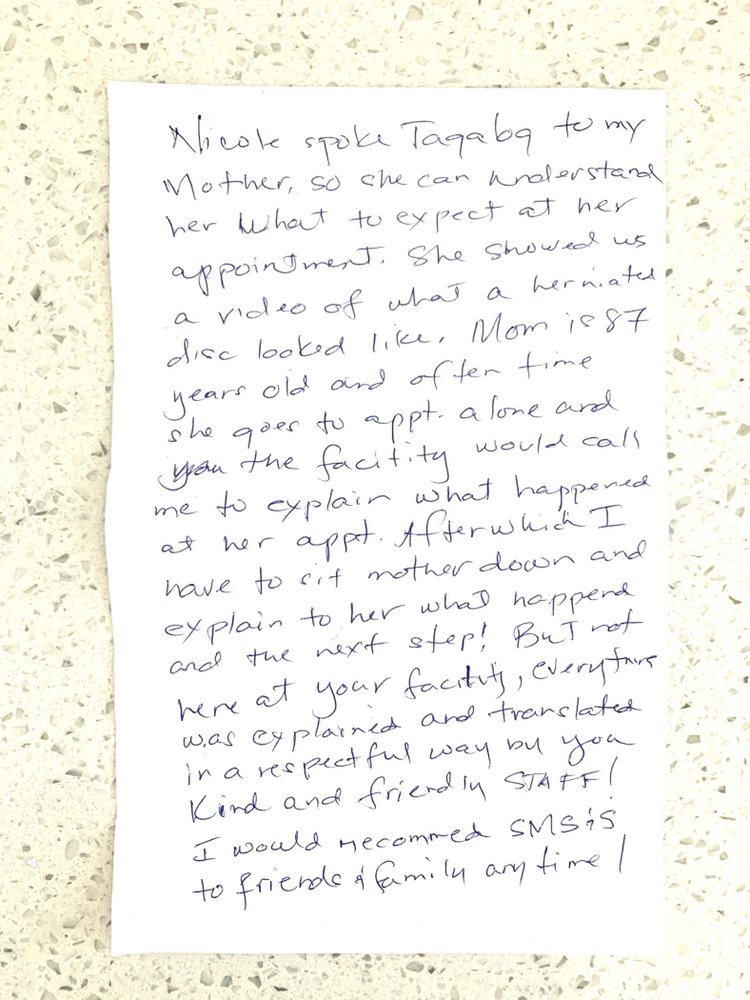 Nicole spoke Tagabg to my
Mother, so she can understand
her what to expect at her
appointment. She showed us
a video of what a herniated
disc looked like. Mom is 87
years old and often time
she goes to appt. alone and
the facitity would call
me to explain what happened
at her appt. Afterwhich I
have to sit mother down and
explain to her what happend
and the next step! But not
here at your facility, everything
was explained and translated
in a respectful way by you
Kind and friendly STAFF!
I would recommed SMSiS
to friends & family anytime!